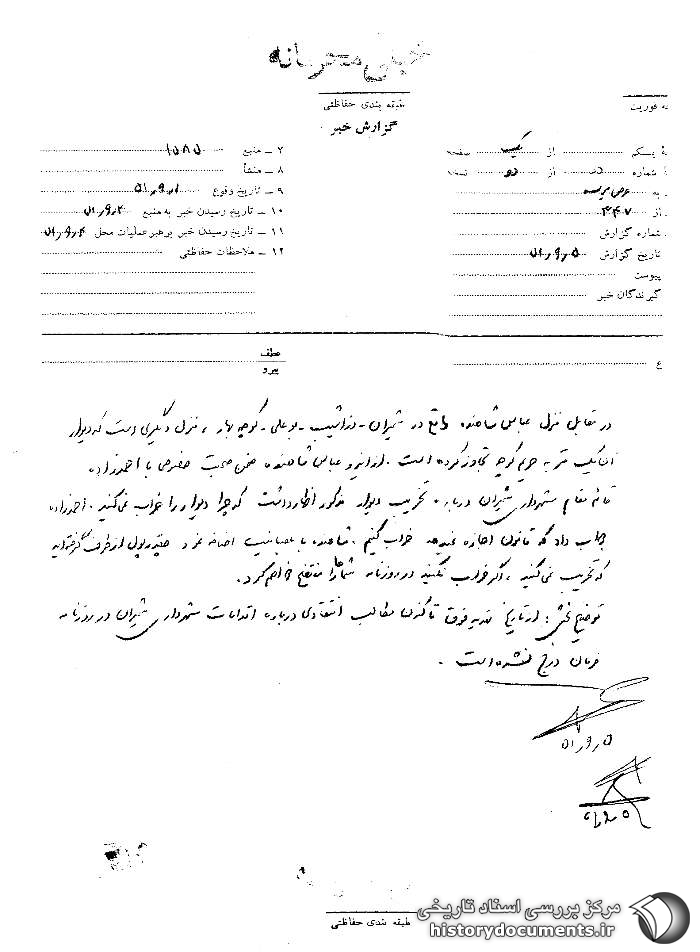 خیلی محرمانه
طبقه بندی حفاظتی
گزارش خبر
به فوریت
صفحه یک از
نسخه از
به
از ۴۴۷
شماره گزارش
تاریخ گزارش ۵ر۹ر۵۱
پیوست
گیرندگان خبر
۷ ـ منبع ۱۰۸۵
۸ ـ منشأ
۹ ـ تاریخ وقوع ۱ر۹ر۵۱
۱۰ ـ تاریخ رسیدن خبر به منبع ۲ر۹ر۵۱
۱۱ ـ تاریخ رسیدن خبر به رهبر عملیات محل ۴ر۹ر۵۱
۱۲ ـ ملاحظات حفاظتی
عطف
پیرو
در مقابل منزل عباس شاهنده واقع در شمیران ـ دزاشیب ـ بوعلی ـ کوچه بهار ، منزل دیگری است که دیوار
آن یک متر به حریم کوچه تجاوز کرده است . از اینرو عباس شاهنده ضمن صحبت خصوصی با احمدزاده
قائم مقام شهرداری شمیران درباره تخریب دیوار مذکور اظهار داشت که چرا دیوار را خراب نمی کنید . احمدزاده
جواب داد که قانون اجازه نمیدهد خراب کنیم . شاهنده با عصبانیت اضافه نمود چقدر پول از طرف گرفته اید
که تخریب نمی کنید ، اگر خراب نکنید در روزنامه شما را مفتضح خواهم کرد .
توضیح بخش : از تاریخ فوق تاکنون مطالب انتقادی درباره اقدامات شهرداری شمیران در روزنامه
فرمان درج نشده است .
۵ر۹ر۵۱
طبقه بندی حفاظتی
مرکز بررسی اسناد تاریخی
historydocuments.ir